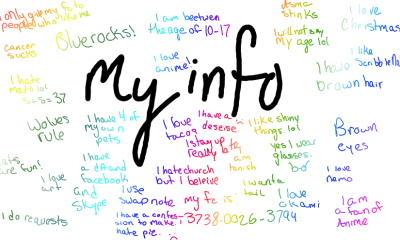 I only give my fc to
people who like me
Bluerocks!
I am beetwen
the age of 10-17
drama
stinks
I love
Christmas
cancer
sucks
I love
anime!
I will not say
my age lol
I like
Scribblen
I hate
math lol
5+5=37
my info
I have
brown hair
Wolves
rule
I have 4 of
my own
pets
I love
tacos
I have a
deseise
I stay up
really late
I like shiny
things lol
yes I wear
glasses.
Brown
eyes
cats
are fun!
I love
art
I have
a dA and
facebook
and
skype
I am
tanish
I hate church
but I beleive
I wanta
tail
I love
nemo
I use
swapnote
my fc is
3738-0026-3794
I love
okami
I am
a fan of
Anime
I do requests
I have a confes-
sion to make. I
hate pie...